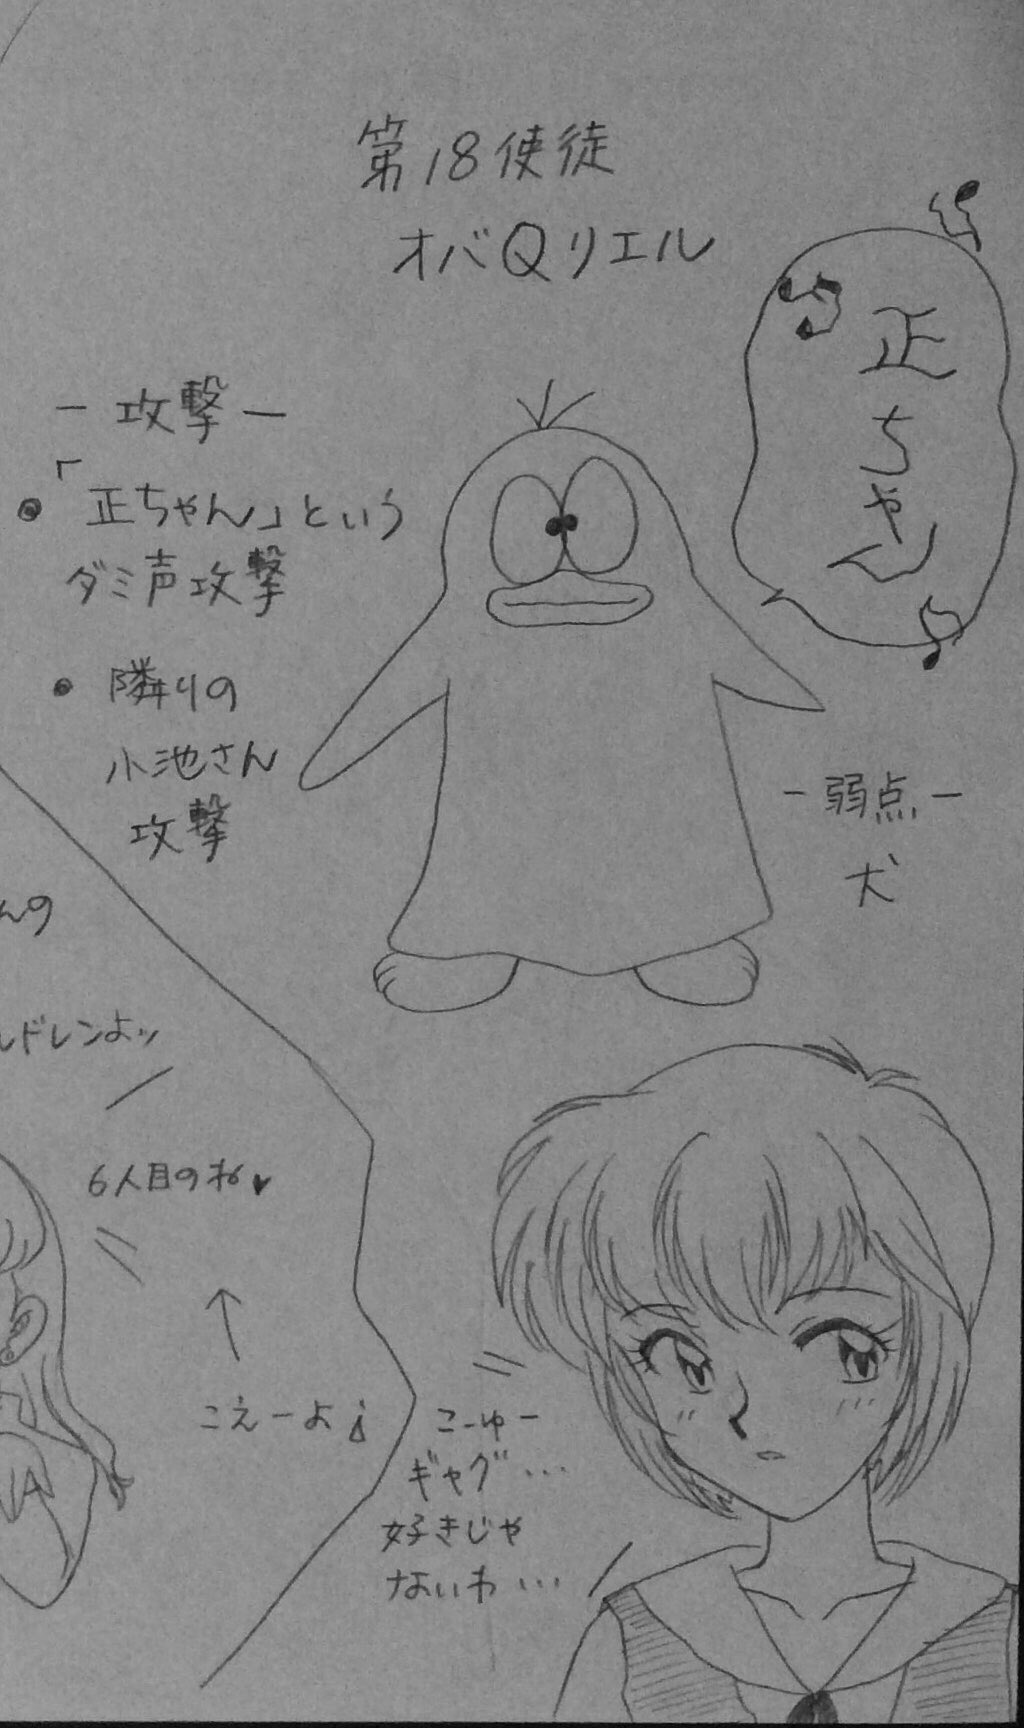 第18使徒
オバQリエル
正ちゃん
－攻撃－
●「正ちゃん」という
ダミ声攻撃
●隣りの
小池さん
攻撃
－弱点－
犬
んの
ルドレンよッ
6人目のね♥
↑
こえーよ
こーゆー
ギャグ…
好きじゃ
ないわ…